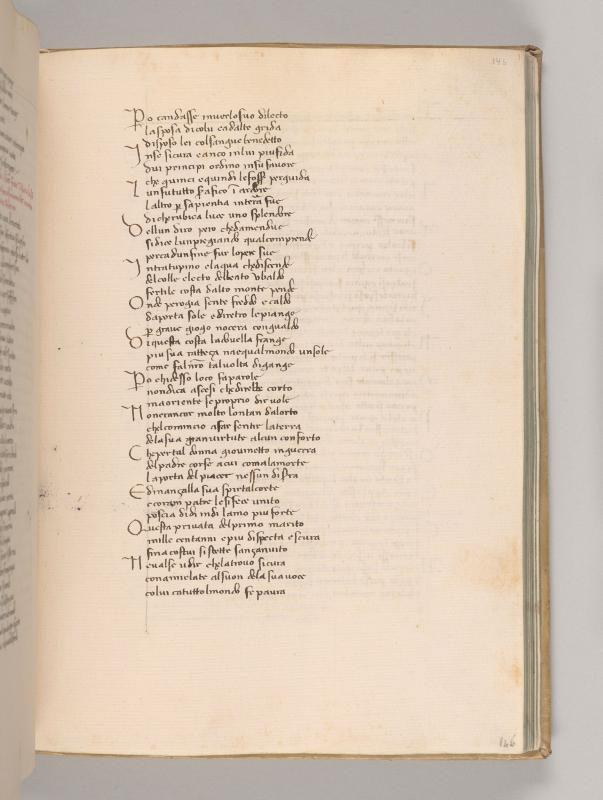 145
Po candasse inverlosuo dilecto
lasposa dicolui cadalte grida
disposo lei colsangue benedetto
Inse sicura eanco inlui piufida
dui principi ordino insu favore
che quinci equindi le fosser perguida
Lunfututto serafico i ardore
laltro per sapientia interra fue
di cherubica luce uno splendore
Dellun diro pero chedamendue
sidice lunpregiando qualcomprende
perca dunfine fur lopere sue
Intratupino elaqua chediscende
delcolle electo delbeato vbaldo
fertile costa dalto monte pende
Onde perogia sente freddo e caldo
daporta sole ediretro lepiange
per graue giogo nocera congualdo
Diquesta costa ladouella frange
piu sua ratteça naequalmondo unsole
come fa lnostro taluolta digange
Po chidesso loco fa parole
nondica ascesi chedirebbe corto
maoriente seproprio dir vole
Nonerancor molto lontan dalorto
chelcomincio afar sentir laterra
dela sua granuirtute alcun conforto
Chepertal donna giouinetto inguerra
delpadre corse acui comalamorte
laporta del piacer nessun disera
Edinançalla sua spirtalcorte
ecoram patre lesifece unito
poscia didi indi lamo piu forte
Questa privata delprimo marito
mille centanni epiu dispecta escura
fina costui sistette sançanuito
Neualse udir chelatrouo sicura
conamielate alsuon dela sua uoce
colui catuttolmondo fe paura
146